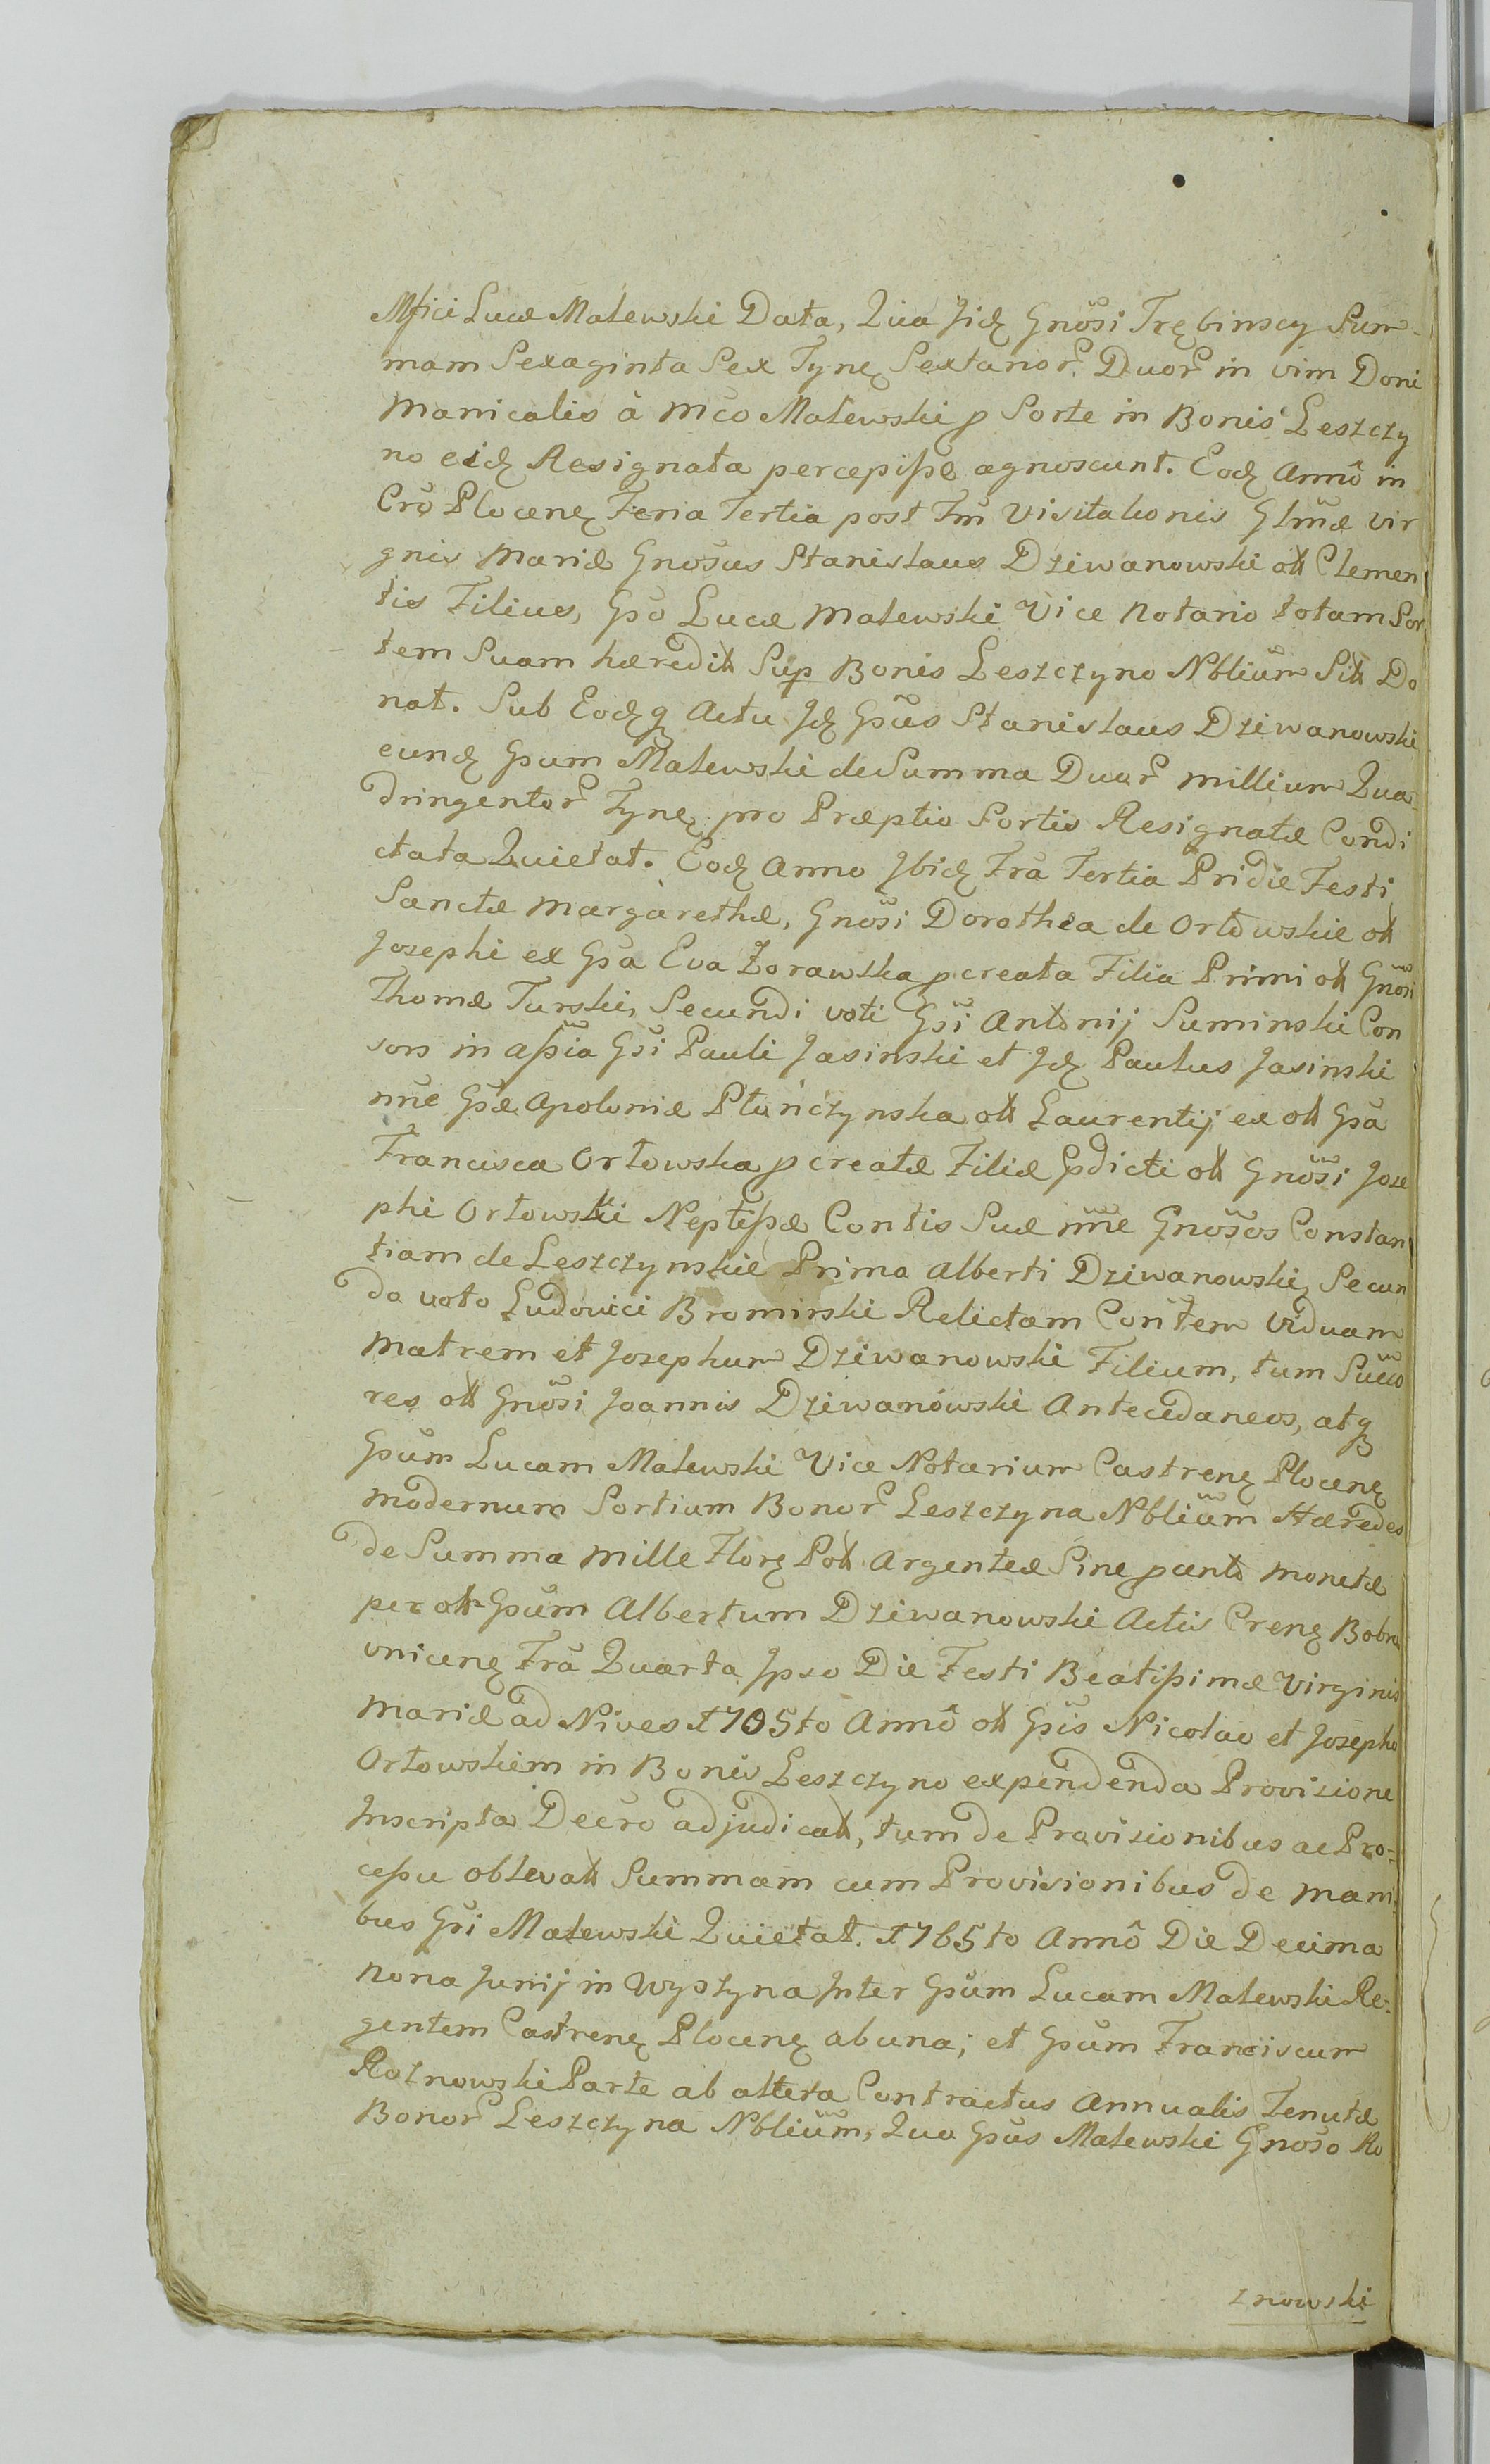 Mfici Lucæ Malewski Data, Qua Jidꝫ Gnõsi Trębinscy Sum-
mam Sexaginta Sex Tynꝫ Sextarior̃ Duor̃ in vim Doni
Manicalis à Mco Malewski p Sorte in Bonis Leszczy
no eidꝫ Resignata percepiſse agnoscunt. Eodꝫ Annô in
Crõ Plocenꝫ Feria Tertia post Fm̃ Visitationis Glm̃æ Vir
gnis Mariæ Gnosus Stanislaus Dziwanowski oll Clemen
tis Filius, Gsõ Lucæ Malewski Vice Notario totam Sor
tem Suam hæredill Sup Bonis Leszczyno Nbliũm Sill Do
nat. Sub Eodꝫqꝫ Actu Jdꝫ Gsũs Stanislaus Dziwanowski
eundꝫ Gsum Malewski de Summa Duor̃ millium Qua
dringentor̃ Tynꝫ pro Præptio Sortis Resignatæ Condi
ctata Quietat. Eodꝫ Anno Jbidꝫ Frã Tertia Pridie Festi
Sanctæ Margarethæ, Gnõsi Dorothea de Orłowskie oll
Josephi ex Gsa Eva Żorawska pcreata Filia Primi oll Gnõsi
Thomæ Turski, Secundi voti Gsi Antonij Suminski Con
sors in aſsia Gsi Pauli Jasinski et Jdꝫ Paulus Jasinski
nñe Gsæ Apoloniæ Płończynska oll Laurentij ex oll Gsã
Francisca Orłowska pcreatæ Filiæ Pdicti oll Gnõsi Jose
phi Orłowski Neptiſsæ Contis Suæ nñe Gnosos Constan
tiam de Leszczynskie Primo Alberti Dziwanowski, Secun
do voto Ludovici Bromirski Relictam Contem Viduam
Matrem et Josephum Dziwanowski Filium, tum Sucõ
res oll Gnõsi Joannis Dziwanowski Antecedaneos, atqꝫ
Gsũm Lucam Malewski Vice Notarium Castrenꝫ Plocenꝫ
modernum Sortium Bonor̃ Leszczyna Nbliũm Hæredes
de Summa Mille Florꝫ Poll Argenteæ Sine pcento Monetæ
per oll Gsũm Albertum Dziwanowski Actis Crenꝫ Bobro
vnicenꝫ Frã Quarta Jpso Die Festi Beatiſsimæ Virginis
Mariæ ad Nives 1705to Annô oll Gsis Nicolao et Josepho
Orłowskiem in Bonis Leszczyno expendenda Provisione
Jnscripta Decro adjudicall, tum de Provisionibus ac Pro-
ceſsu oblevall Summam cum Provisionibus de mani
bus Gsi Malewski Quietat. 1765to Annô Die Decima
Nona Junij in Wyszyna Jnter Gsũm Lucam Malewski Re-
gentem Castrenꝫ Plocenꝫ ab una; et Gsũm Franciscum
Roznowski Parte ab altera Contractus Annualis Tenutæ
Bonor̃ Leszczyna Nbliũm, Quo Gsũs Malewski Gnoso Ro
znowski